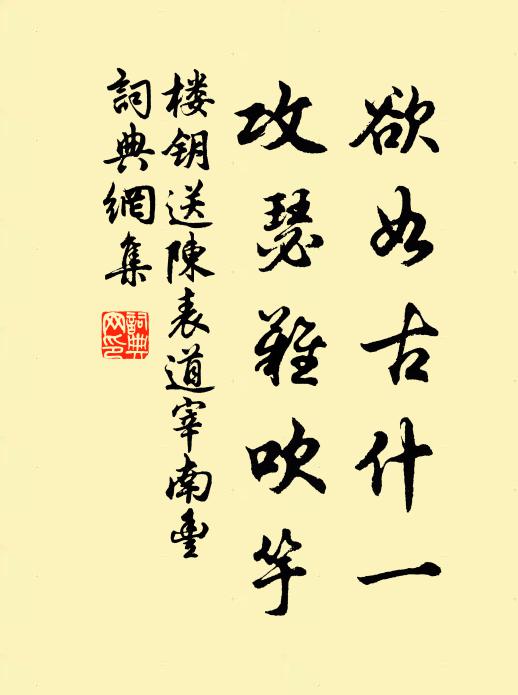 欲如古什一
攻瑟难吹竽
楼钥送陳表道宰南豐
詞典網集
詞典网印